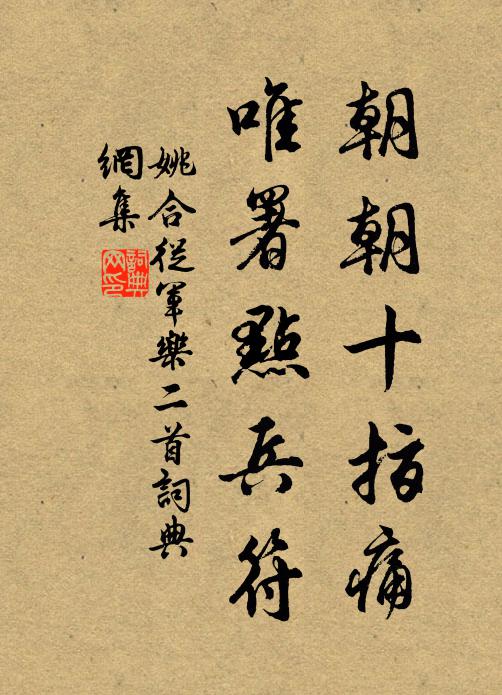 朝朝十指痛
唯署點兵符
姚合從軍樂二首詞典
網集
詞典
网印